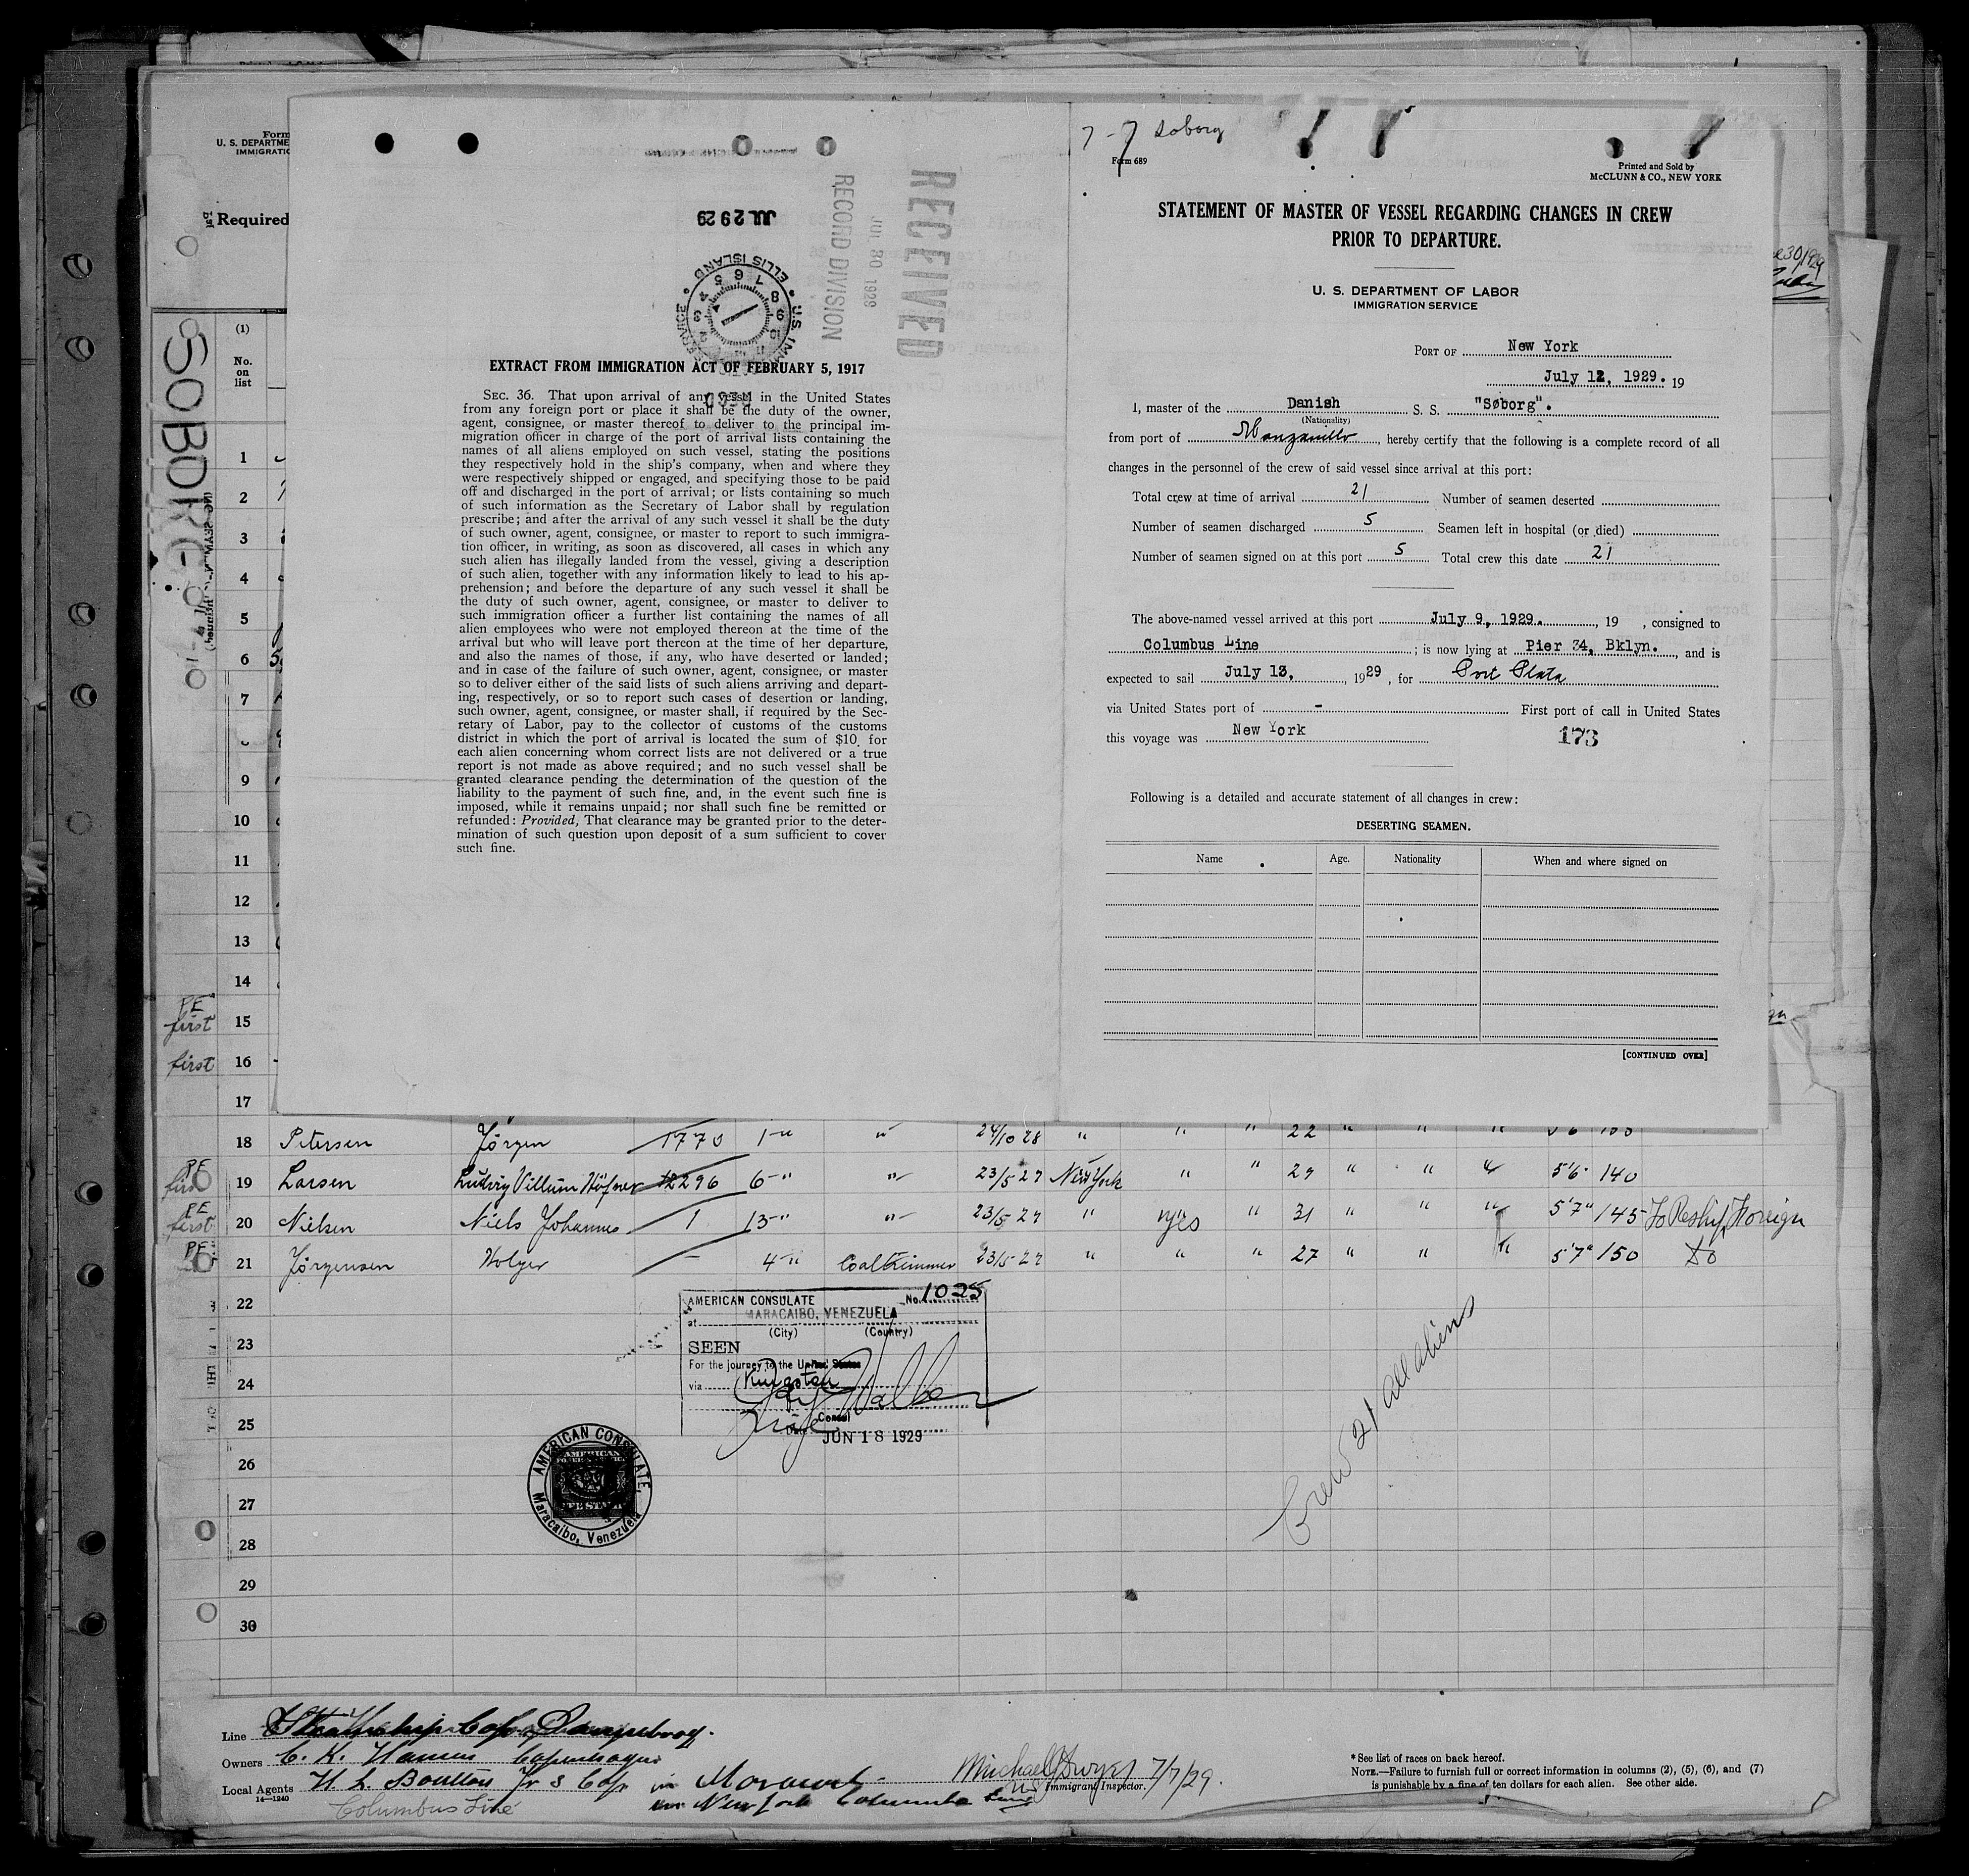 Form
U. S. DEPARTME
IMMIGRATIO
Required
(1)
No.
on
list
SOBORG
JUL 29 29
U.S. IMM SERVICE • ELLIS ISLAND •
RECEIVED
JUL 30 1929
RECORD DIVISION
EXTRACT FROM IMMIGRATION ACT OF FEBRUARY 5, 1917
SEC. 36. That upon arrival of any vessel in the United States
from any foreign port or place it shall be the duty of the owner,
agent, consignee, or master thereof to deliver to the principal im-
migration officer in charge of the port of arrival lists containing the
names of all aliens employed on such vessel, stating the positions
they respectively hold in the ship's company, when and where they
were respectively shipped or engaged, and specifying those to be paid
off and discharged in the port of arrival; or lists containing so much
of such information as the Secretary of Labor shall by regulation
prescribe; and after the arrival of any such vessel it shall be the duty
of such owner, agent, consignee, or master to report to such immigra-
tion officer, in writing, as soon as discovered, all cases in which any
such alien has illegally landed from the vessel, giving a description
of such alien, together with any information likely to lead to his ap-
prehension; and before the departure of any such vessel it shall be
the duty of such owner, agent, consignee, or master to deliver to
such immigration officer a further list containing the names of all
alien employees who were not employed thereon at the time of the
arrival but who will leave port thereon at the time of her departure,
and also the names of those, if any, who have deserted or landed;
and in case of the failure of such owner, agent, consignee, or master
so to deliver either of the said lists of such aliens arriving and depart-
ing, respectively, or so to report such cases of desertion or landing,
such owner, agent, consignee, or master shall, if required by the Sec-
retary of Labor, pay to the collector of customs of the customs
district in which the port of arrival is located the sum of $10. for
each alien concerning whom correct lists are not delivered or a true
report is not made as above required; and no such vessel shall be
granted clearance pending the determination of the question of the
liability to the payment of such fine, and, in the event such fine is
imposed, while it remains unpaid; nor shall such fine be remitted or
refunded: Provided, That clearance may be granted prior to the deter-
mination of such question upon deposit of a sum sufficient to cover
such fine.
7-7 Soborg
Form 689
Printed and Sold by
McCLUNN & CO., NEW YORK
STATEMENT OF MASTER OF VESSEL REGARDING CHANGES IN CREW
PRIOR TO DEPARTURE.
U. S. DEPARTMENT OF LABOR
IMMIGRATION SERVICE
PORT OF New York
July 12, 1929. 19
I, master of the Danish S. S. "Søborg".
(Nationality)
from port of Manzanillo, hereby certify that the following is a complete record of all
changes in the personnel of the crew of said vessel since arrival at this port:
Total crew at time of arrival 21 Number of seamen deserted
Number of seamen discharged 5 Seamen left in hospital (or died)
Number of seamen signed on at this port 5 Total crew this date 21
The above-named vessel arrived at this port July 9, 1929. , 19 , consigned to
Columbus Line ; is now lying at Pier 34, Bklyn. , and is
expected to sail July 13, , 1929 , for Port Plata
via United States port of - First port of call in United States
this voyage was New York 173
Following is a detailed and accurate statement of all changes in crew:
DESERTING SEAMEN.
Name Age. Nationality When and where signed on
[CONTINUED OVER]
1
2
3
4
5
6
7
9
10
11
12
13
14
PE first 15
first 16
17
18 Petersen Jörgen 1770 1 " " 24/10 28 " " " 22 " " "
PE first 19 Larsen Ludvig Villum Höfner 2296 6 " " 23/5 29 New York " " 29 " " " 5'6" 140
PE first 20 Nielsen Niels Johannes 1 13 " " 23/5 29 " yes " 31 " " " 5'7" 145 To Reship Foreign
PE 21 Jörgensen Holger - 4 " Coaltrimmer 23/5 29 " " " 27 " " " 5'7" 150 Do
22
23
24
25
26
27
28
29
30
AMERICAN CONSULATE No. 1025
at MARACAIBO, VENEZUELA
(City) (Country)
SEEN
For the journey to the United States
via Kingston
Consul
Date JUN 18 1929
AMERICAN CONSULATE, Maracaibo, Venezuela
Crew 21 all aliens
Line
Owners C. K. Hansen Copenhagen
Local Agents H. L. Boulton Jr & Co
14—1240
in New York Columbus Line
Columbus Line
Michael J Dwyer 7/7/29.
Immigrant Inspector.
* See list of races on back hereof.
NOTE.—Failure to furnish full or correct information in columns (2), (5), (6), and (7)
is punishable by a fine of ten dollars for each alien. See other side.